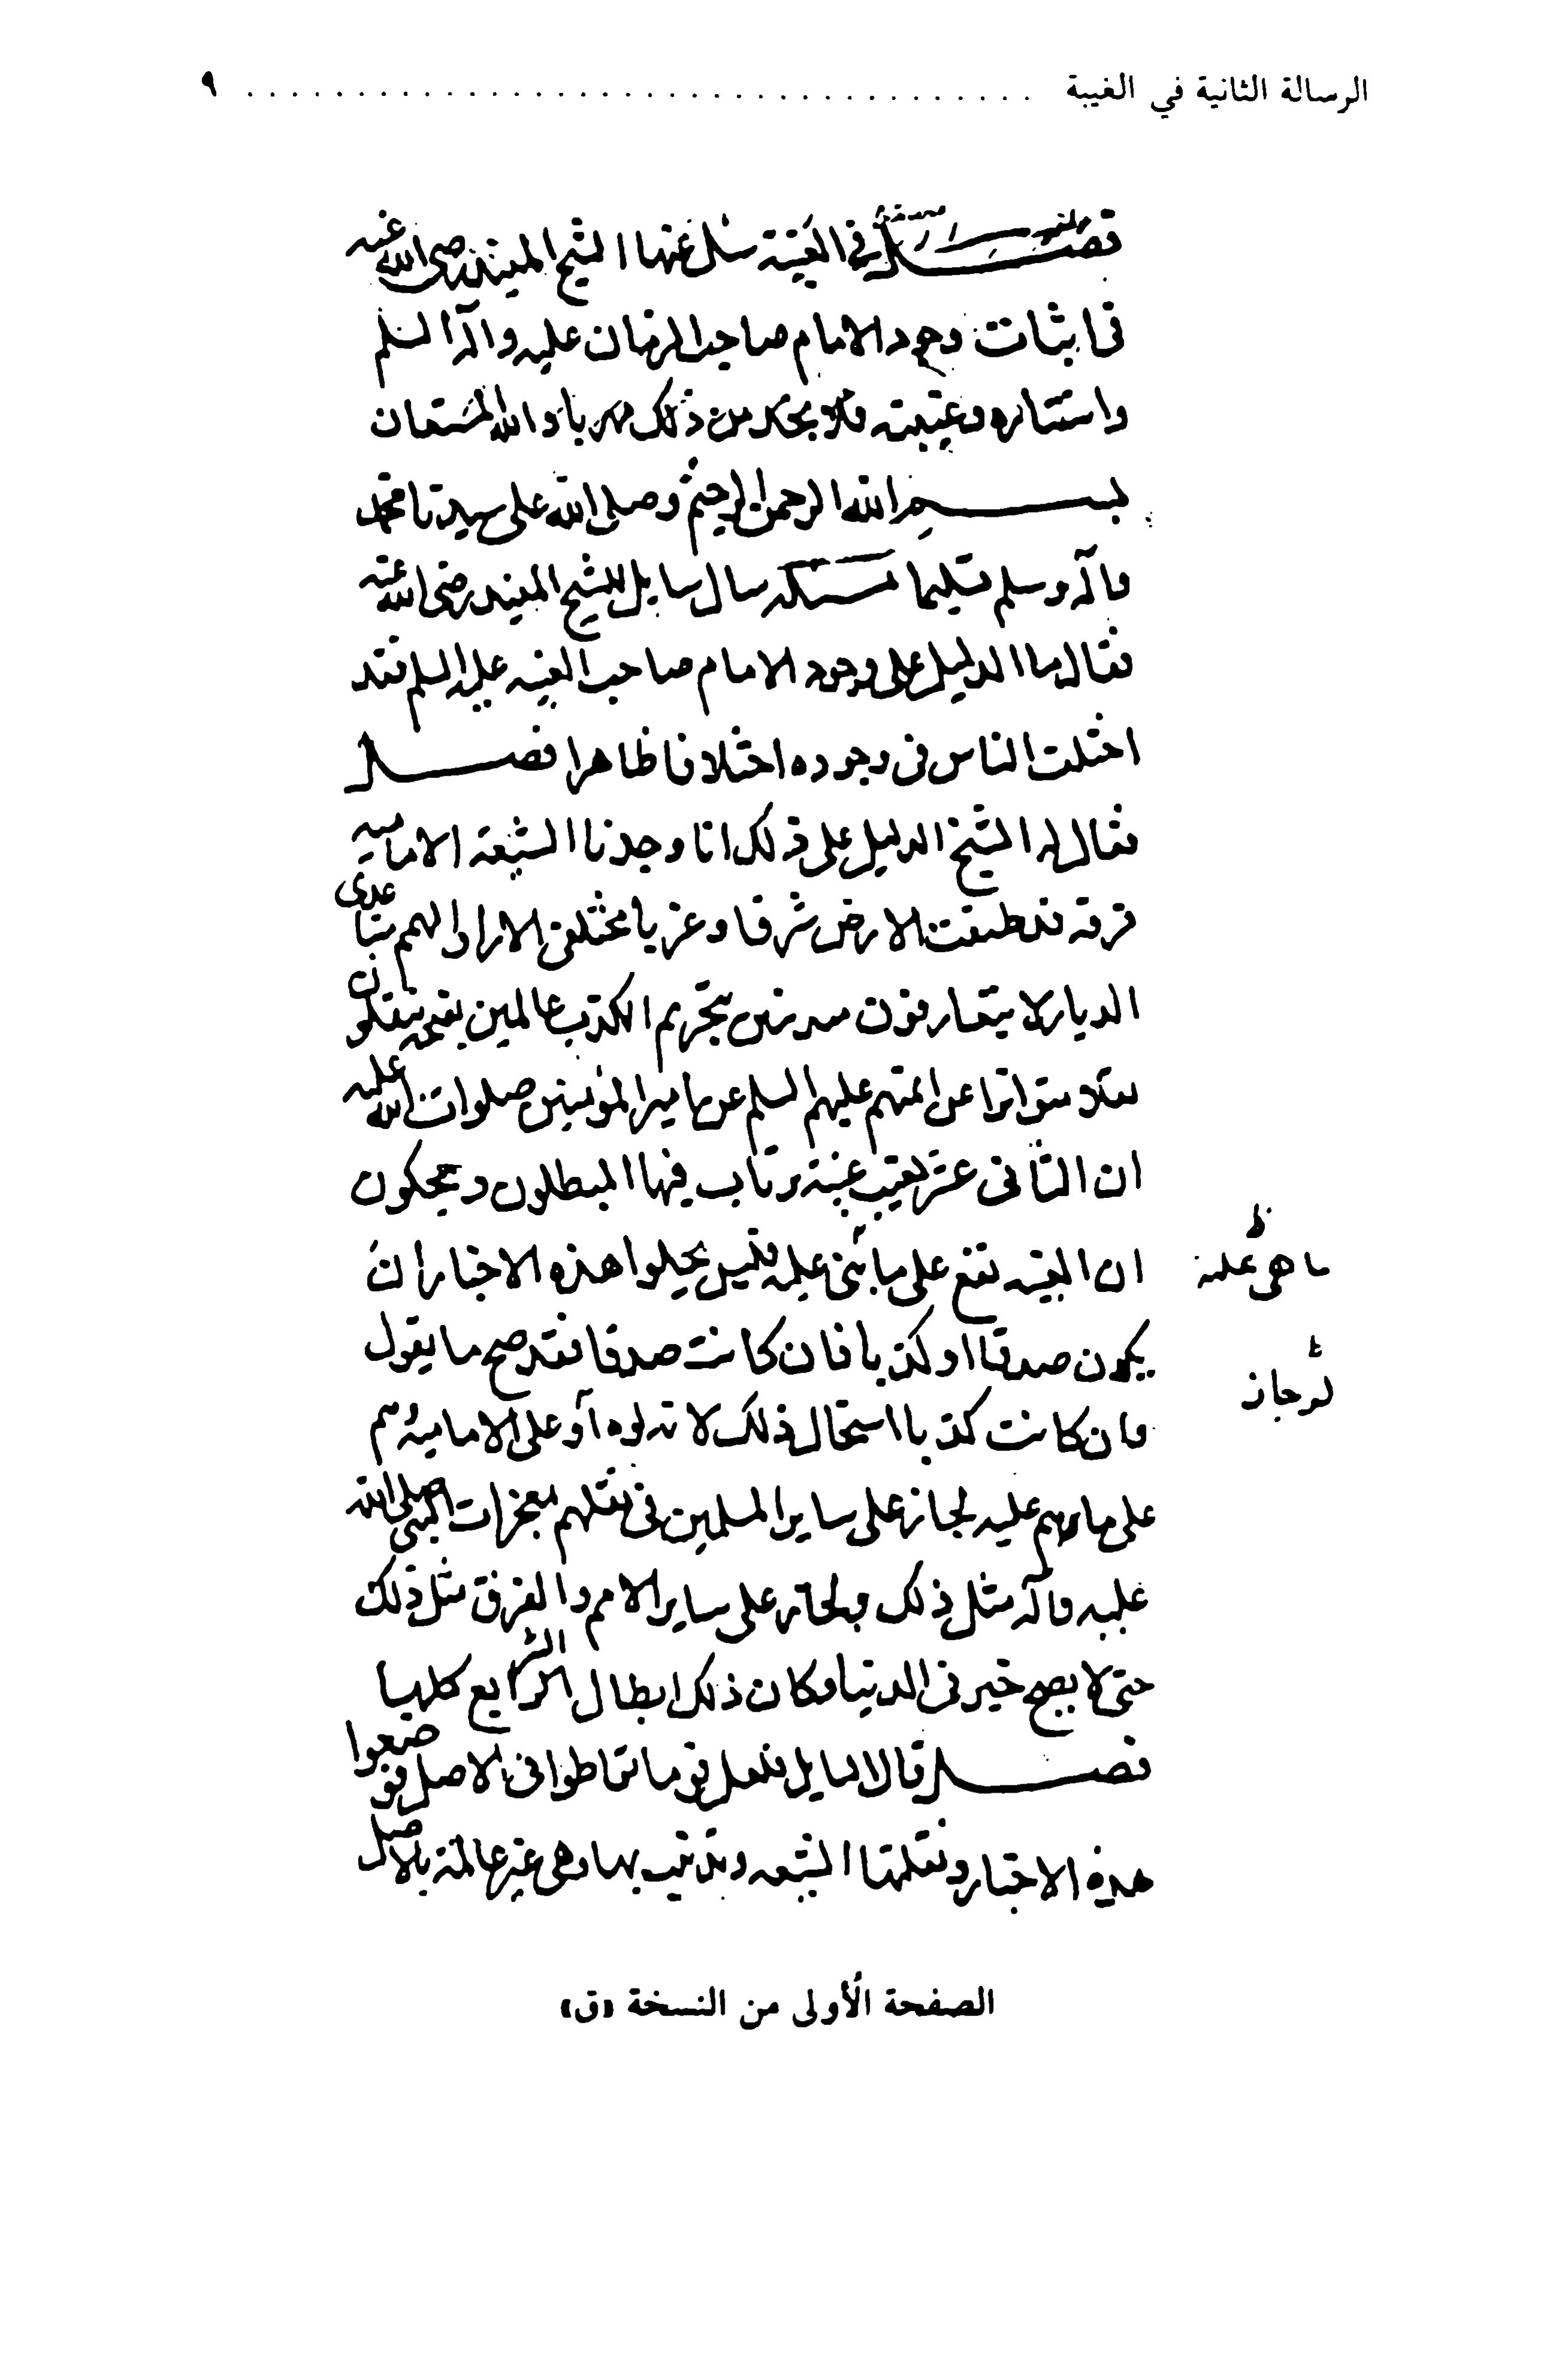 الرسالة الثانية في الغيبة ........................................ ٩
فصل في الغيبة سئل عنها الشيخ المفيد رضي الله عنه
في اثبات وجود الامام صاحب الزمان عليه واله السلم
واستتاره وغيبته فلا بحد من ذلك مهربا والله المستعان
بسم الله الرحمن الرحيم وصلى الله على سيدنا محمد
واله وسلم تسليما مسئلة سال سايل للشيخ المفيد رضي الله عنه
فقال ما الدليل على وجود الامام صاحب الغيبه عليه السلم فقد
اختلف الناس في وجوده اختلافا ظاهرا فصل
فقال له الشيخ الدليل على ذلك انا وجدنا الشيعة الاماميه
فرقة قد طبقت الارض شرقا وغربا مختلفي الاراء والهمم متباعدى
الديار لا يتعارفون متدينين بتحريم الكذب عالمين بقبحه ينقلون
نقلا متواترا عن ائمتهم عليهم السلم عن امير المؤمنين صلوات الله عليه
ان الثاني عشر يغيب غيبة يرتاب فيها المبطلون ويحكون
ان الغيبه تقع على ما عليه فليس يخلوا هذه الاخبار ان
ما هي عليه
يكون صدقا او كذبا فان كانت صدقا فقد صح ما يقول
وان كانت كذبا استحال ذلك لا على الامامية
لو جاز
على ما هم عليه لجاز على ساير المسلمين في نقلهم معجزات النبي صلى الله
عليه واله مثل ذلك ولجاز على ساير الامم والفرق مثل ذلك
حتى لا يصح خبر في الدنيا وكان ذلك ابطال الشرايع كلها
فصل قال السايل فلعل قوما تواطوا في الاصل فوضعوا
هذه الاخبار ونقلتها الشيعه وتدينت بها وهي غير عالمة بالاصل
الصفحة الأولى من النسخة «ق»